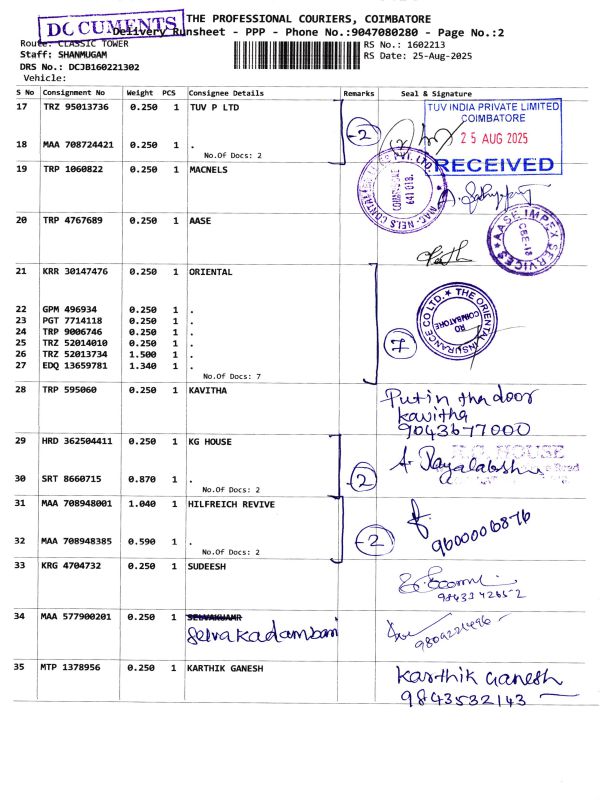 DOCUMENTS
THE PROFESSIONAL COURIERS, COIMBATORE
Delivery Runsheet - PPP - Phone No.:9047080280 - Page No.:2
Route: CLASSIC TOWER
RS No.: 1602213
Staff: SHANMUGAM
RS Date: 25-Aug-2025
DRS No.: DCJB160221302
Vehicle:
S No Consignment No Weight PCS Consignee Details Remarks Seal & Signature
17 TRZ 95013736 0.250 1 TUV P LTD
TUV INDIA PRIVATE LIMITED
COIMBATORE
25 AUG 2025
RECEIVED
-2
18 MAA 708724421 0.250 1 .
No.Of Docs: 2
19 TRP 1060822 0.250 1 MACNELS
COIMBATORE
641 018.
20 TRP 4767689 0.250 1 AASE
AASE IMPEX SERVICES
CBE-18
21 KRR 30147476 0.250 1 ORIENTAL
THE ORIENTAL INSURANCE CO LTD.
RO
COIMBATORE
22 GPM 496934 0.250 1 .
23 PGT 7714118 0.250 1 .
24 TRP 9006746 0.250 1 .
25 TRZ 52014010 0.250 1 .
26 TRZ 52013734 1.500 1 .
27 EDQ 13659781 1.340 1 .
7
No.Of Docs: 7
28 TRP 595060 0.250 1 KAVITHA
Put in tha door
kavitha
9043677000
29 HRD 362504411 0.250 1 KG HOUSE
K.G. HOUSE
30 SRT 8660715 0.870 1 .
-2
No.Of Docs: 2
31 MAA 708948001 1.040 1 HILFREICH REVIVE
9600006876
32 MAA 708948385 0.590 1 .
-2
No.Of Docs: 2
33 KRG 4704732 0.250 1 SUDEESH
9843342652
34 MAA 577900201 0.250 1 SELVAKUAMR
Selvakadambari
9809221496
35 MTP 1378956 0.250 1 KARTHIK GANESH
Karthik Ganesh
9843532143